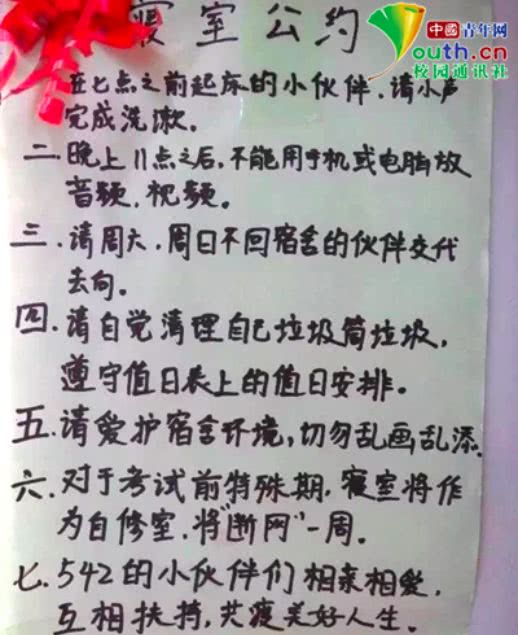 寝室公约
中國青年网
Youth.cn
校园通讯社
在七点之前起床的小伙伴.请小声
完成洗漱。
二.晚上11点之后,不能用手机或电脑放
音频,视频。
三.请周六.周日不回宿舍的伙伴交代
去向。
四.请自觉清理自己垃圾筒垃圾,
遵守值日表上的值日安排。
五.请爱护宿舍环境,切勿乱画乱添.
六.对于考试前特殊期,寝室将作
为自修室,将“断网”一周。
七.542的小伙伴们相亲相爱,
互相扶持,共度美好人生.